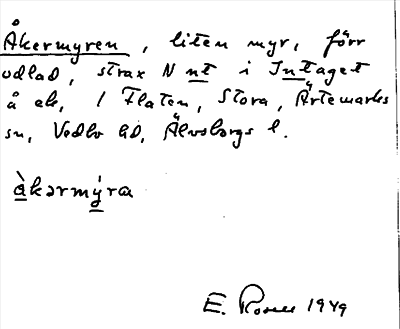 Åkermyren, liten myr, förr
odlad, strax N nt i Intaget
å ek, 1 Flaten, Stora, Ärtemarks
sn, Vedbo hd, Älvsborgs l.
åkərmýra
E. 1949